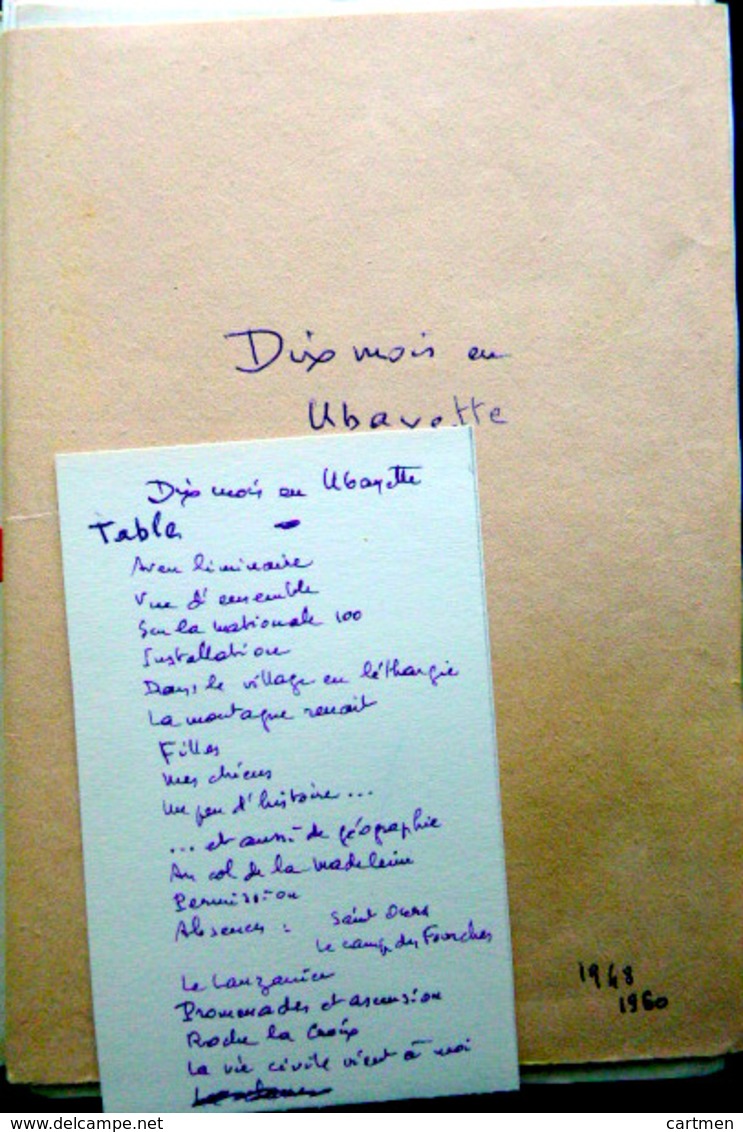 Dix mois en
Ubayette
Dix mois en Ubayette
Table
Aveu liminaire
Vue d'ensemble
Sur la nationale 100
Installation
Dans le village en léthargie
La montagne renaît
Filles
Mes chiens
Un peu d'histoire...
... et aussi de géographie
Au col de la Madeleine
Permission
Absences : Saint Ours
Le camp des Fourches
Le Lauzanier
Promenades et ascension
Roche la Croix
La vie civile vient à moi
1948
1960
delcampe.net
cartmen